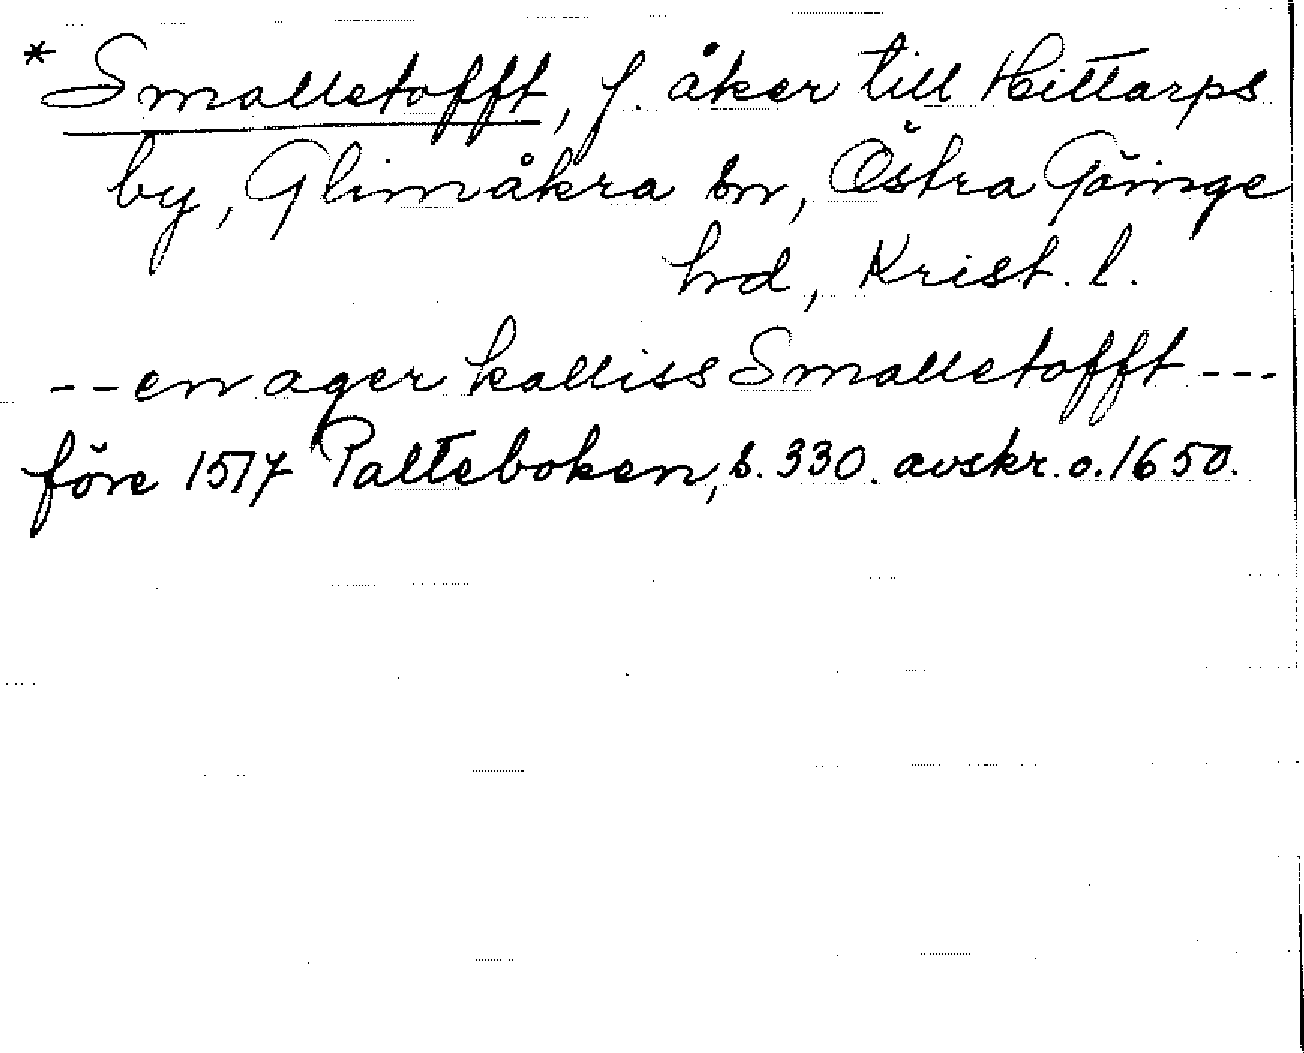 * Smalletofft, f. åker till Hittarps
by, Glimåkra sn, Östra Göinge
hd, Krist. l.
--en ager kalliss Smalletofft ---
före 1517 Palteboken, s. 330. avskr. o. 1650.